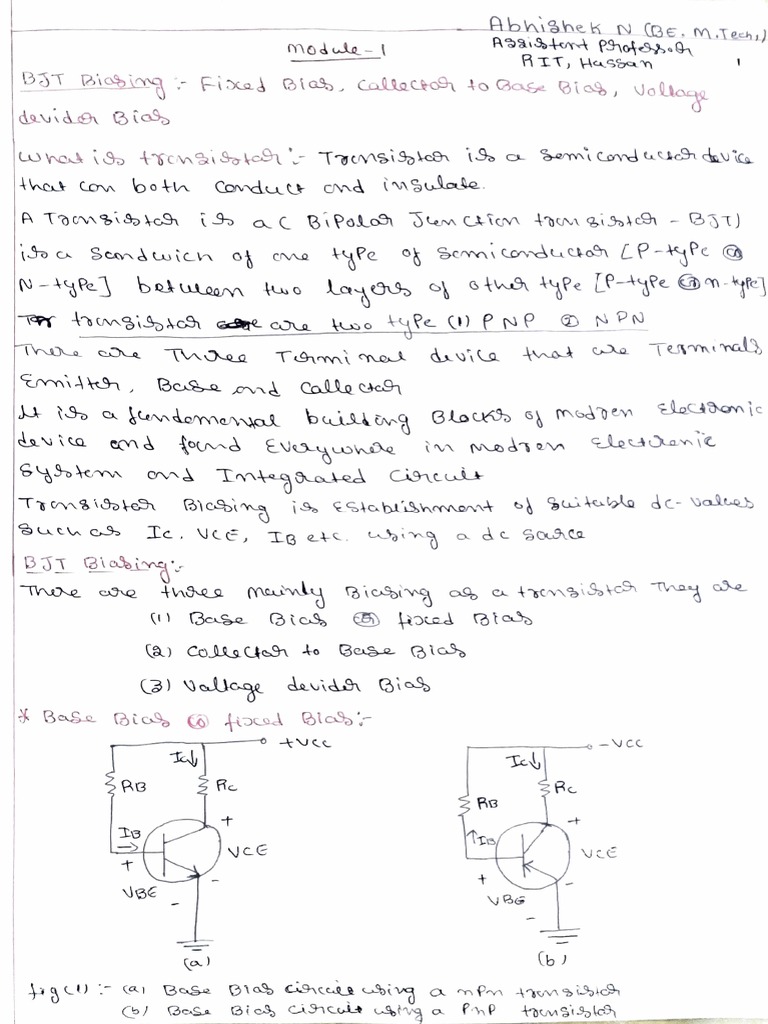 Abhishek N (BE. M.Tech,)
Assistant Professor
RIT, Hassan
1
Module-1
BJT Biasing :- Fixed Bias, Collector to Base Bias, Voltage
devider Bias
What is transistor :- Transistor is a semiconductor device
that can both conduct and insulate.
A Transistor is a ( BiPolar Junction transistor - BJT)
is a sandwich of one type of semiconductor [P-type or
N-type] between two layers of other type [P-type or n-type]
transistor are two type (1) PNP (2) NPN
There are Three Terminal device that are Terminals
Emitter, Base and Collector
It is a fundemental building Blocks of modren Electronic
device and found Everywhere in modren Electronic
System and Integrated Circuit
Transistor Biasing is Establishment of suitable dc-values
such as IC, VCE, IB etc. using a dc sarce
BJT Biasing:-
There are three mainly Biasing as a transistor They are
(1) Base Bias or fixed Bias
(2) Collector to Base Bias
(3) Valtage devider Bias
* Base Bias or fixed Bias:-
+VCC
IC↓
RB
RC
IB
+
VCE
+
VBE
-
-
(a)
-VCC
IC↓
RB
RC
↑IB
+
VCE
+
VBE
-
-
(b)
fig(1) :- (a) Base Bias circuit using a nPn transistor
(b) Base Bias circuit using a PnP transistor